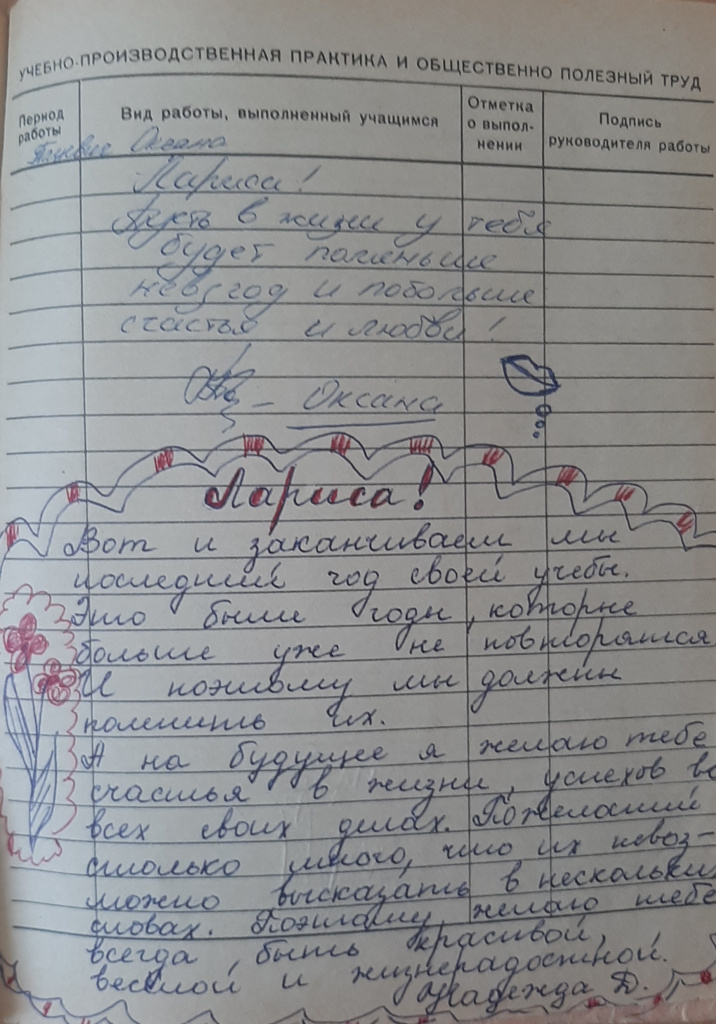 УЧЕБНО-ПРОИЗВОДСТВЕННАЯ ПРАКТИКА И ОБЩЕСТВЕННО ПОЛЕЗНЫЙ ТРУД
Период работы
Вид работы, выполненный учащимся
Отметка о выпол-нении
Подпись руководителя работы
Оксана
Лариса!
Пусть в жизни у тебя
будет поменьше
невзгод и побольше
счастья и любви!
– Оксана
Лариса!
Вот и заканчиваем мы
последний год своей учебы.
Это были годы, которые
больше уже не повторятся
И поэтому мы должны
помнить их.
А на будущее я желаю тебе
счастья в жизни, успехов во
всех своих делах. Пожеланий
столько много, что их невоз-
можно высказать в нескольких
словах. Поэтому желаю тебе
всегда быть красивой,
веселой и жизнерадостной.
Надежда Д.